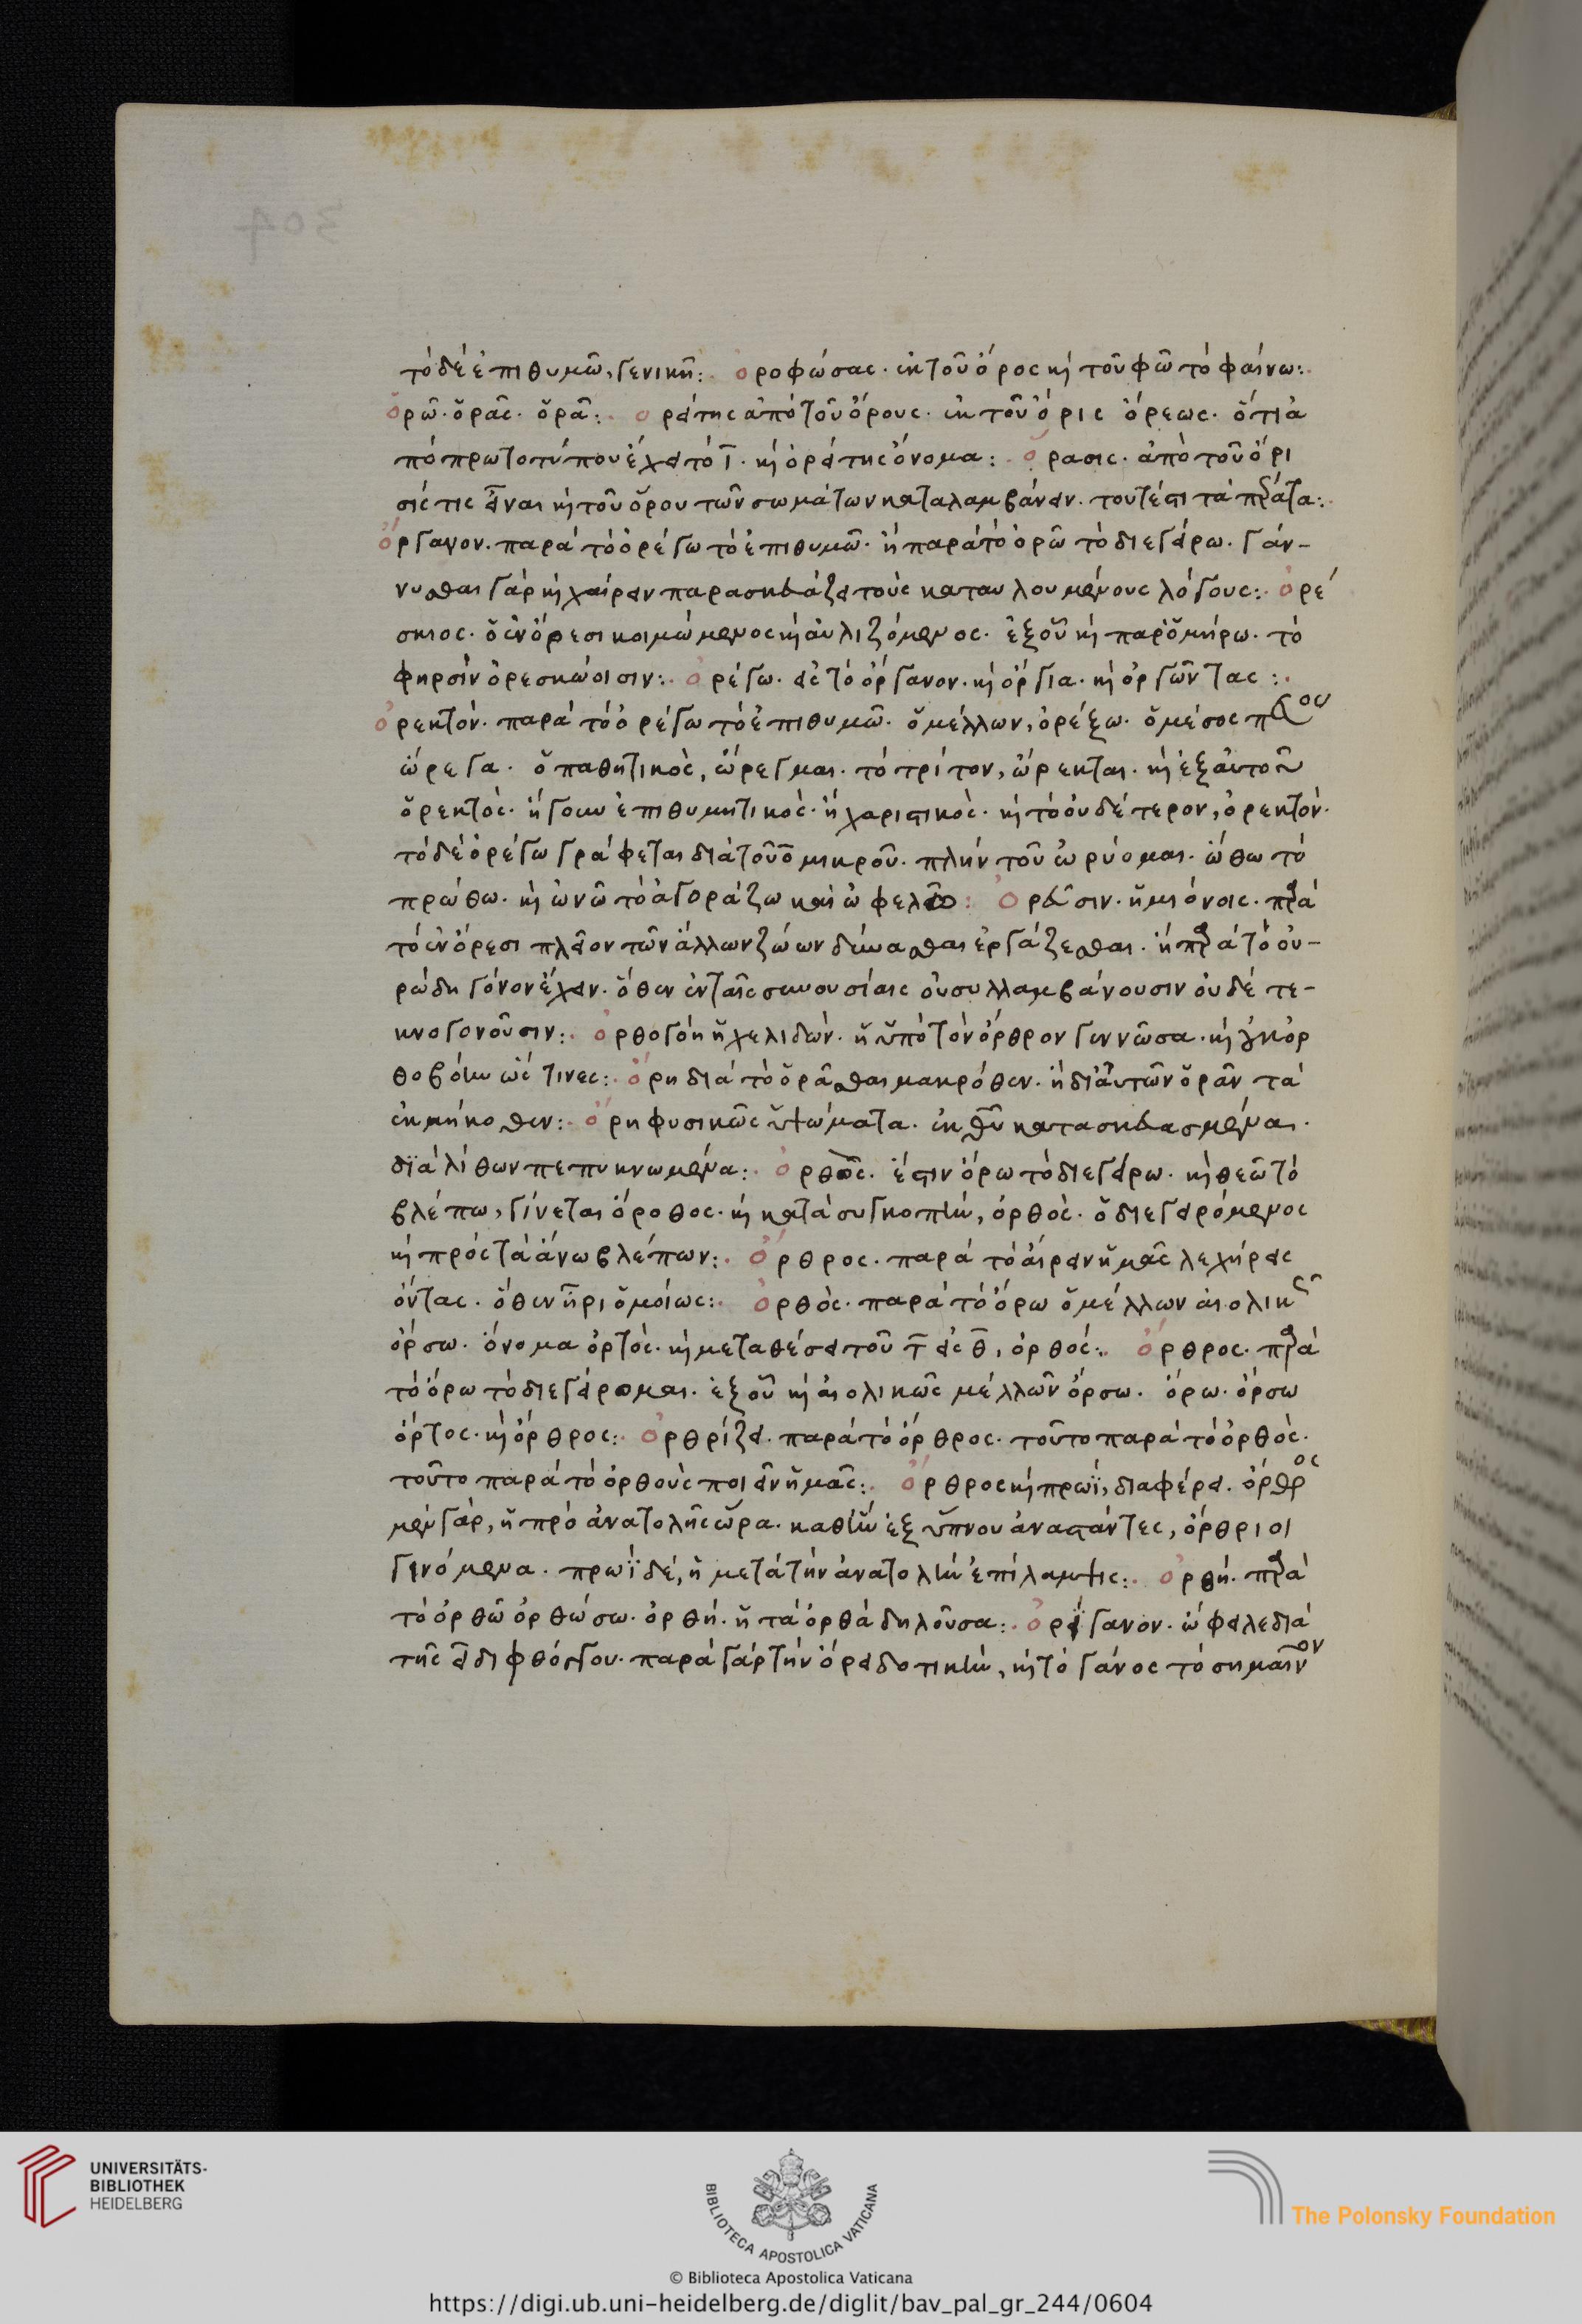 304
τὸ δὲ ἐπιθυμῶ, γενικῆ:· ὀροφώσας· ἐκ τοῦ ὄρος κὴ τοῦ φῶ τὸ φαίνω:·
ὁρῶ· ὁρᾶς· ὁρᾶ:· ὁράτης ἀπὸ τοῦ ὄρους· ἐκ τοῦ ὄρις ὄρεως· ὅτι ἀ
πὸ πρωτοτύπου ἔχει τὸ ῑ· κὴ ὁράτης ὄνομα:· ὅρασις· ἀπὸ τοῦ ὅρι
σίς τις εἶναι κὴ τοῦ ὅρου τῶν σωμάτων καταλαμβάνειν· τουτέστι τὰ πέρατα:·
ὄργανον· παρὰ τὸ ὀρέγω τὸ ἐπιθυμῶ· ἢ παρὰ τὸ ὀρῶ τὸ διεγείρω· γάν-
νυσθαι γὰρ κὴ χαίρειν παρασκευάζει τοὺς καταυλουμένους λόγους:· ὀρέ
σκιος· ὁ ἐν ὄρεσι κοιμώμενος κὴ αὐλιζόμενος· ἐξ οὗ κὴ παρ' ὁμήρω· τὸ
φηρσὶν ὀρεσκώοισιν:· ὀρέγω· εἰς τὸ ὄργανον· κὴ ὄργια· κὴ ὀργῶντας:·
ὀρεκτόν· παρὰ τὸ ὀρέγω τὸ ἐπιθυμῶ· ὁ μέλλων, ὀρέξω· ὁ μέσος
ὤρεγα· ὁ παθητικὸς, ὤρεγμαι· τὸ τρίτον, ὤρεκται· κὴ ἐξ αὐτοῦ
ὀρεκτὸς· ἤγουν ἐπιθυμητικὸς· ἢ χαριστικὸς· κὴ τὸ οὐδέτερον, ὀρεκτόν·
τὸ δὲ ὀρέγω γράφεται διὰ τοῦ ο μικροῦ· πλὴν τοῦ ὠρύομαι· ὠθω τὸ
πρώθω· κὴ ὠνῶ τὸ ἀγοράζω καὶ ὠφελῶ:· ὀρεῦσιν· ἡμιόνοις· παρὰ
τὸ ἐν ὄρεσι πλεῖον τῶν ἄλλων ζώων δύνασθαι ἐργάζεσθαι· ἢ παρὰ τὸ οὐ-
ρώδη γόνον ἔχειν· ὅθεν ἐν ταῖς συνουσίαις οὐ συλλαμβάνουσιν οὐδὲ τε-
κνογονοῦσιν:· ὀρθογόη ἡ χελιδών· ἡ ὑπὸ τὸν ὄρθρον γεννῶσα· κὴ ὀρ
θοβόην ὥς τινες:· ὄρη διὰ τὸ ὁρᾶσθαι μακρόθεν· ἢ δι' αὐτῶν ὁρᾶν τὰ
ἐκ μήκοθεν:· ὄρη φυσικῶς ὑψώματα· ἐκ θῦ κατασκευασμέναι·
διὰ λίθων πεπυκνωμένα:· ὀρθῶς· ἔστιν ὄρω τὸ διεγείρω· κὴ θεῶ τὸ
βλέπω, γίνεται ὄροθος· κὴ κατὰ συγκοπὴν, ὀρθὸς· ὁ διεγειρόμενος
κὴ πρὸς τὰ ἄνω βλέπων:· ὄρθρος· παρὰ τὸ αἴρειν ἡμᾶς λεχήρεις
ὄντας· ὅθεν ἦρι ὁμοίως:· ὀρθὸς· παρὰ τὸ ὄρω ὁ μέλλων αἰολικῶς
ὄρσω· ὄνομα ὀρτὸς· κὴ μεταθέσει τοῦ τ̄ εἰς θ̄, ὀρθός:· ὄρθρος· παρὰ
τὸ ὄρω τὸ διεγείρομαι· ἐξ οὗ κὴ αἰολικῶς μέλλων ὄρσω· ὄρω· ὄρσω
ὄρτος· κὴ ὄρθρος:· ὀρθρίζει· παρὰ τὸ ὄρθρος· τοῦτο παρὰ τὸ ὀρθὸς·
τοῦτο παρὰ τὸ ὀρθοὺς ποιεῖν ἡμᾶς:· ὄρθρος κὴ πρωΐ, διαφέρει· ὄρθρος
μὲν γὰρ, ἡ πρὸ ἀνατολῆς ὥρα· καθ' ἣν ἐξ ὕπνου ἀναστάντες, ὄρθριοι
γινόμενα· πρωῒ δὲ, ἡ μετὰ τὴν ἀνατολὴν ἐπίλαμψις:· ὀρθή· παρὰ
τὸ ὀρθῶ ὀρθώσω· ὀρθή· ἡ τὰ ὀρθὰ δηλοῦσα:· ὀρίγανον· ὤφειλε διὰ
τῆς ει διφθόγγου· παρὰ γὰρ τὴν ὄρει δοτικὴν, κὴ τὸ γάνος τὸ σημαῖνον
UNIVERSITÄTS-
BIBLIOTHEK
HEIDELBERG
BIBLIOTECA APOSTOLICA VATICANA
The Polonsky Foundation
© Biblioteca Apostolica Vaticana
https://digi.ub.uni-heidelberg.de/diglit/bav_pal_gr_244/0604